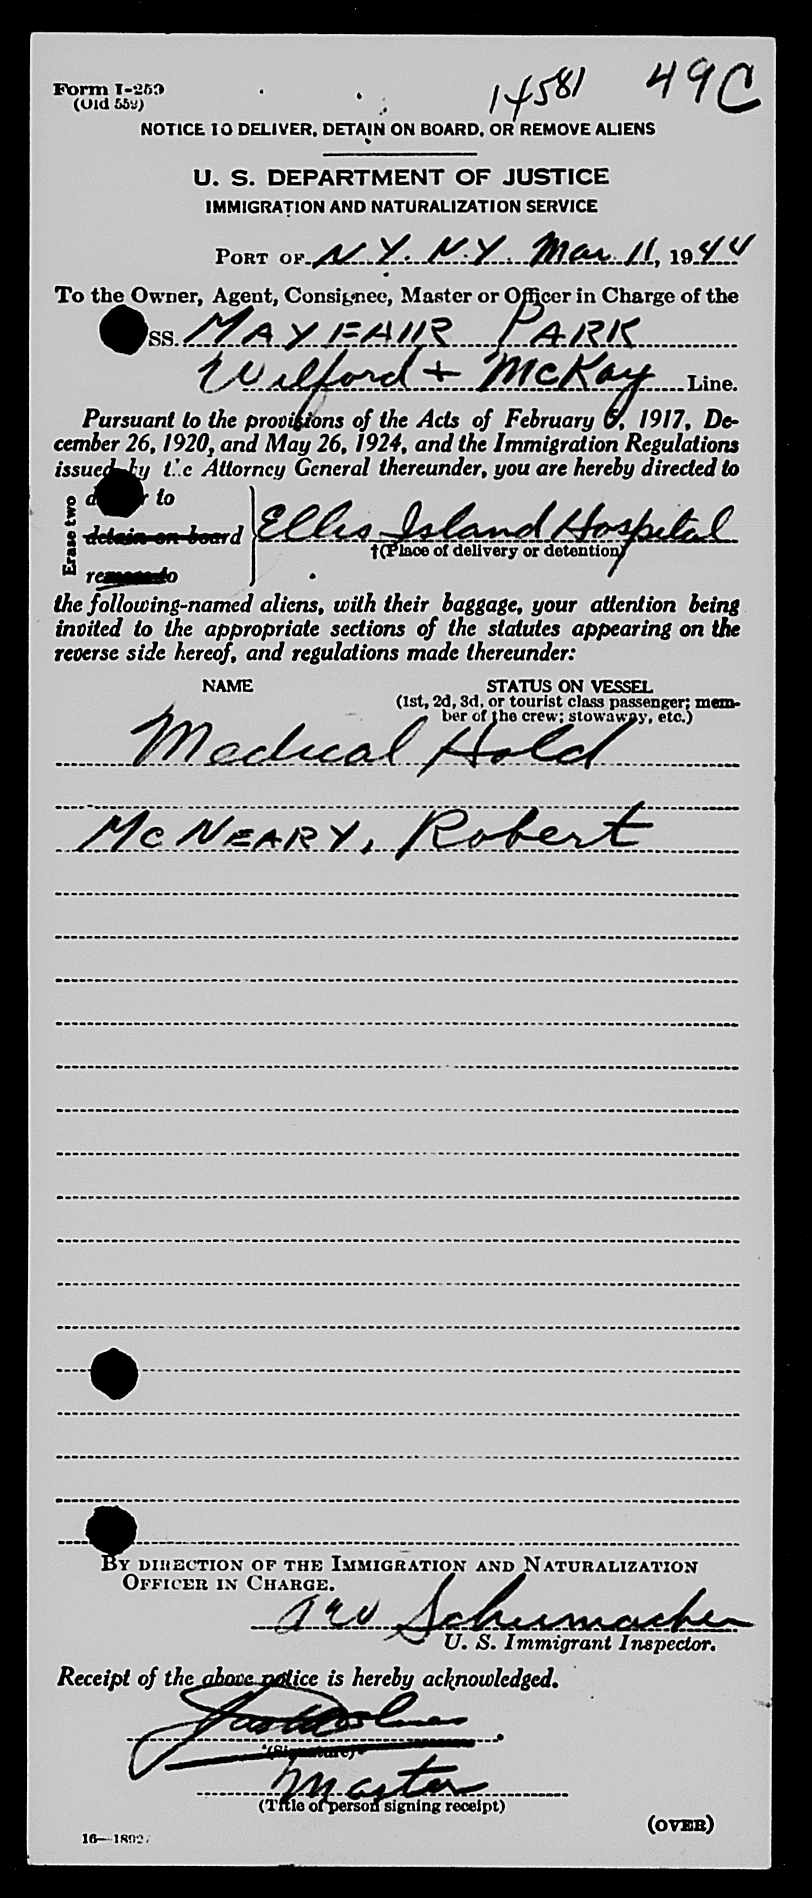 Form I-259
(Old 559)
14581
49C
NOTICE TO DELIVER, DETAIN ON BOARD, OR REMOVE ALIENS
U. S. DEPARTMENT OF JUSTICE
IMMIGRATION AND NATURALIZATION SERVICE
PORT OF N.Y. N.Y. Mar 11, 1944
To the Owner, Agent, Consignee, Master or Officer in Charge of the
SS. MAYFAIR PARK
Wilford + McKay Line.
Pursuant to the provisions of the Acts of February 5, 1917, De-
cember 26, 1920, and May 26, 1924, and the Immigration Regulations
issued by the Attorney General thereunder, you are hereby directed to
Erase two
to
detain on board
Ellis Island Hospital
†(Place of delivery or detention)
the following-named aliens, with their baggage, your attention being
invited to the appropriate sections of the statutes appearing on the
reverse side hereof, and regulations made thereunder:
NAME STATUS ON VESSEL
(1st, 2d, 3d, or tourist class passenger; mem-
ber of the crew; stowaway, etc.)
Medical Hold
McNEARY, Robert
BY DIRECTION OF THE IMMIGRATION AND NATURALIZATION
OFFICER IN CHARGE.
Schumacher
U. S. Immigrant Inspector.
Receipt of the above notice is hereby acknowledged.
(Signature)
Master
(Title of person signing receipt)
(OVER)